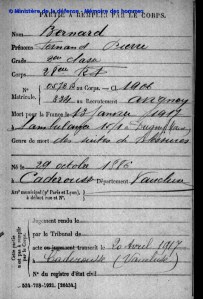 © Ministère de la défense - Mémoire des hommes
PARTIE À REMPLIR PAR LE CORPS.
Nom Bernard
Prénoms Fernand Pierre
Grade 2me classe
Corps
N° 05738 au Corps. — Cl. 1906
Matricule. 324 au Recrutement Avignon
Mort pour la France le 13 janvier 1917
à l'ambulance
Genre de mort des suites de blessures
Né le 29 octobre 1886
à Caderousse Département Vaucluse
Arrt municipal (pr Paris et Lyon),
à défaut rue et N°.
Cette partie
n'est pas à remplir
par le Corps.
Jugement rendu le
par le Tribunal de
acte ou jugement transcrit le 20 Avril 1917
à Caderousse (Vaucluse)
N° du registre d'état civil
534-708-1921. [26434.]